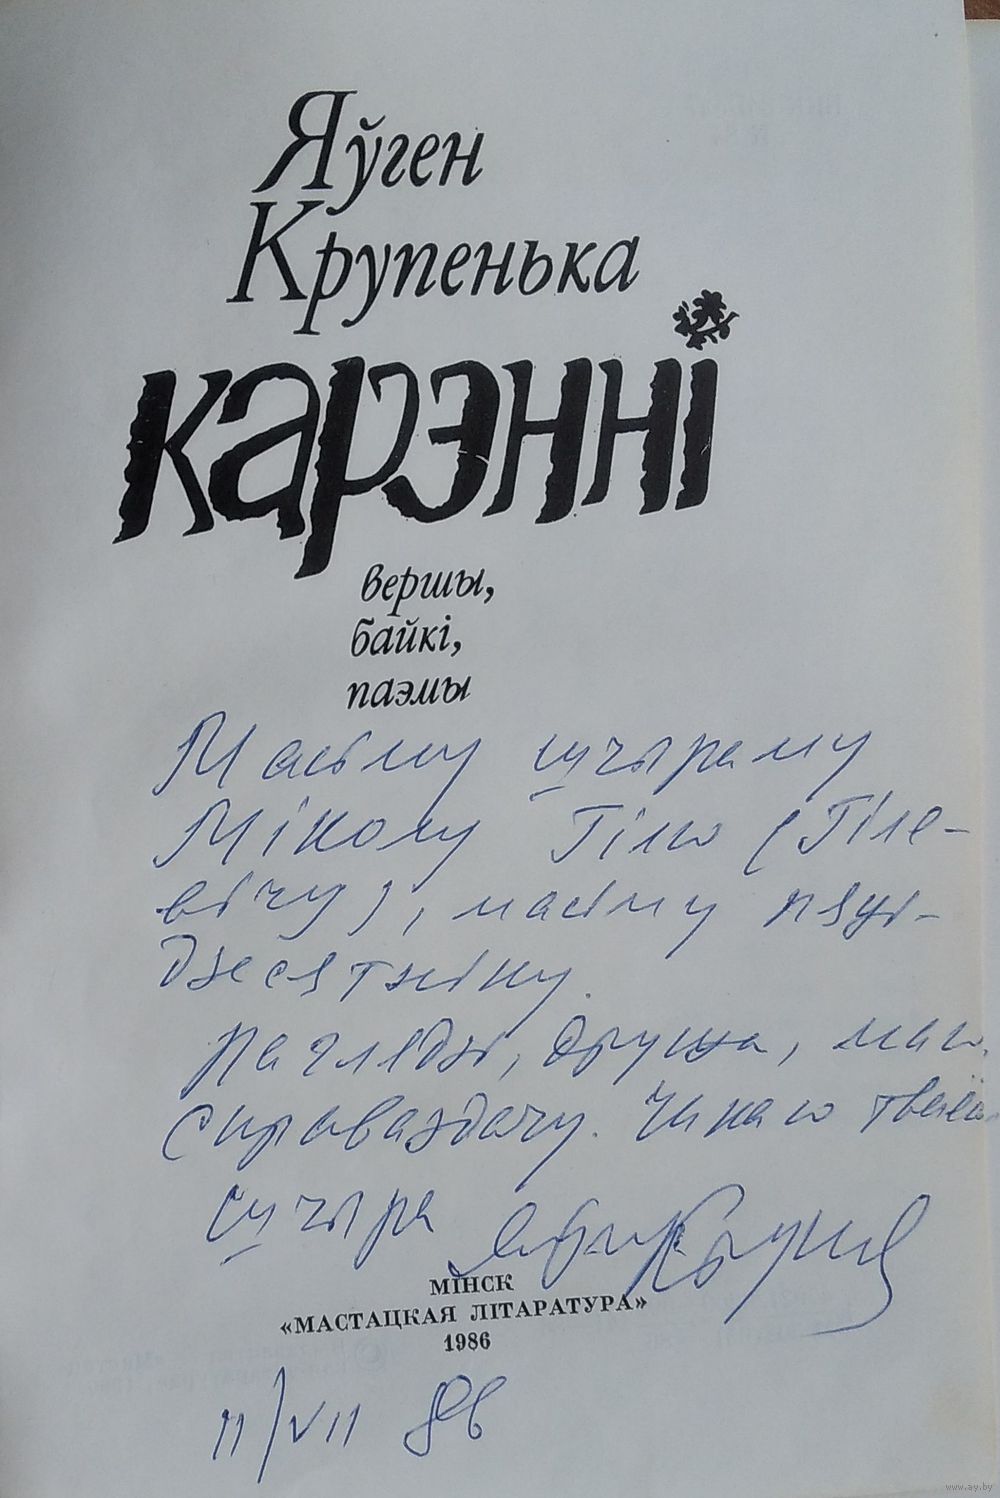 Яўген
Крупенька
карэнні
вершы,
байкі,
паэмы
Маіму шчыраму
Міколу Гілю (Гіле-
вічу), маіму пяці-
дзесятніку.
Паглядзі, дружа, маю
справаздачу. Чакаю тваёй
Шчыра
МІНСК
«МАСТАЦКАЯ ЛІТАРАТУРА»
1986
11/VII 86
www.ay.by